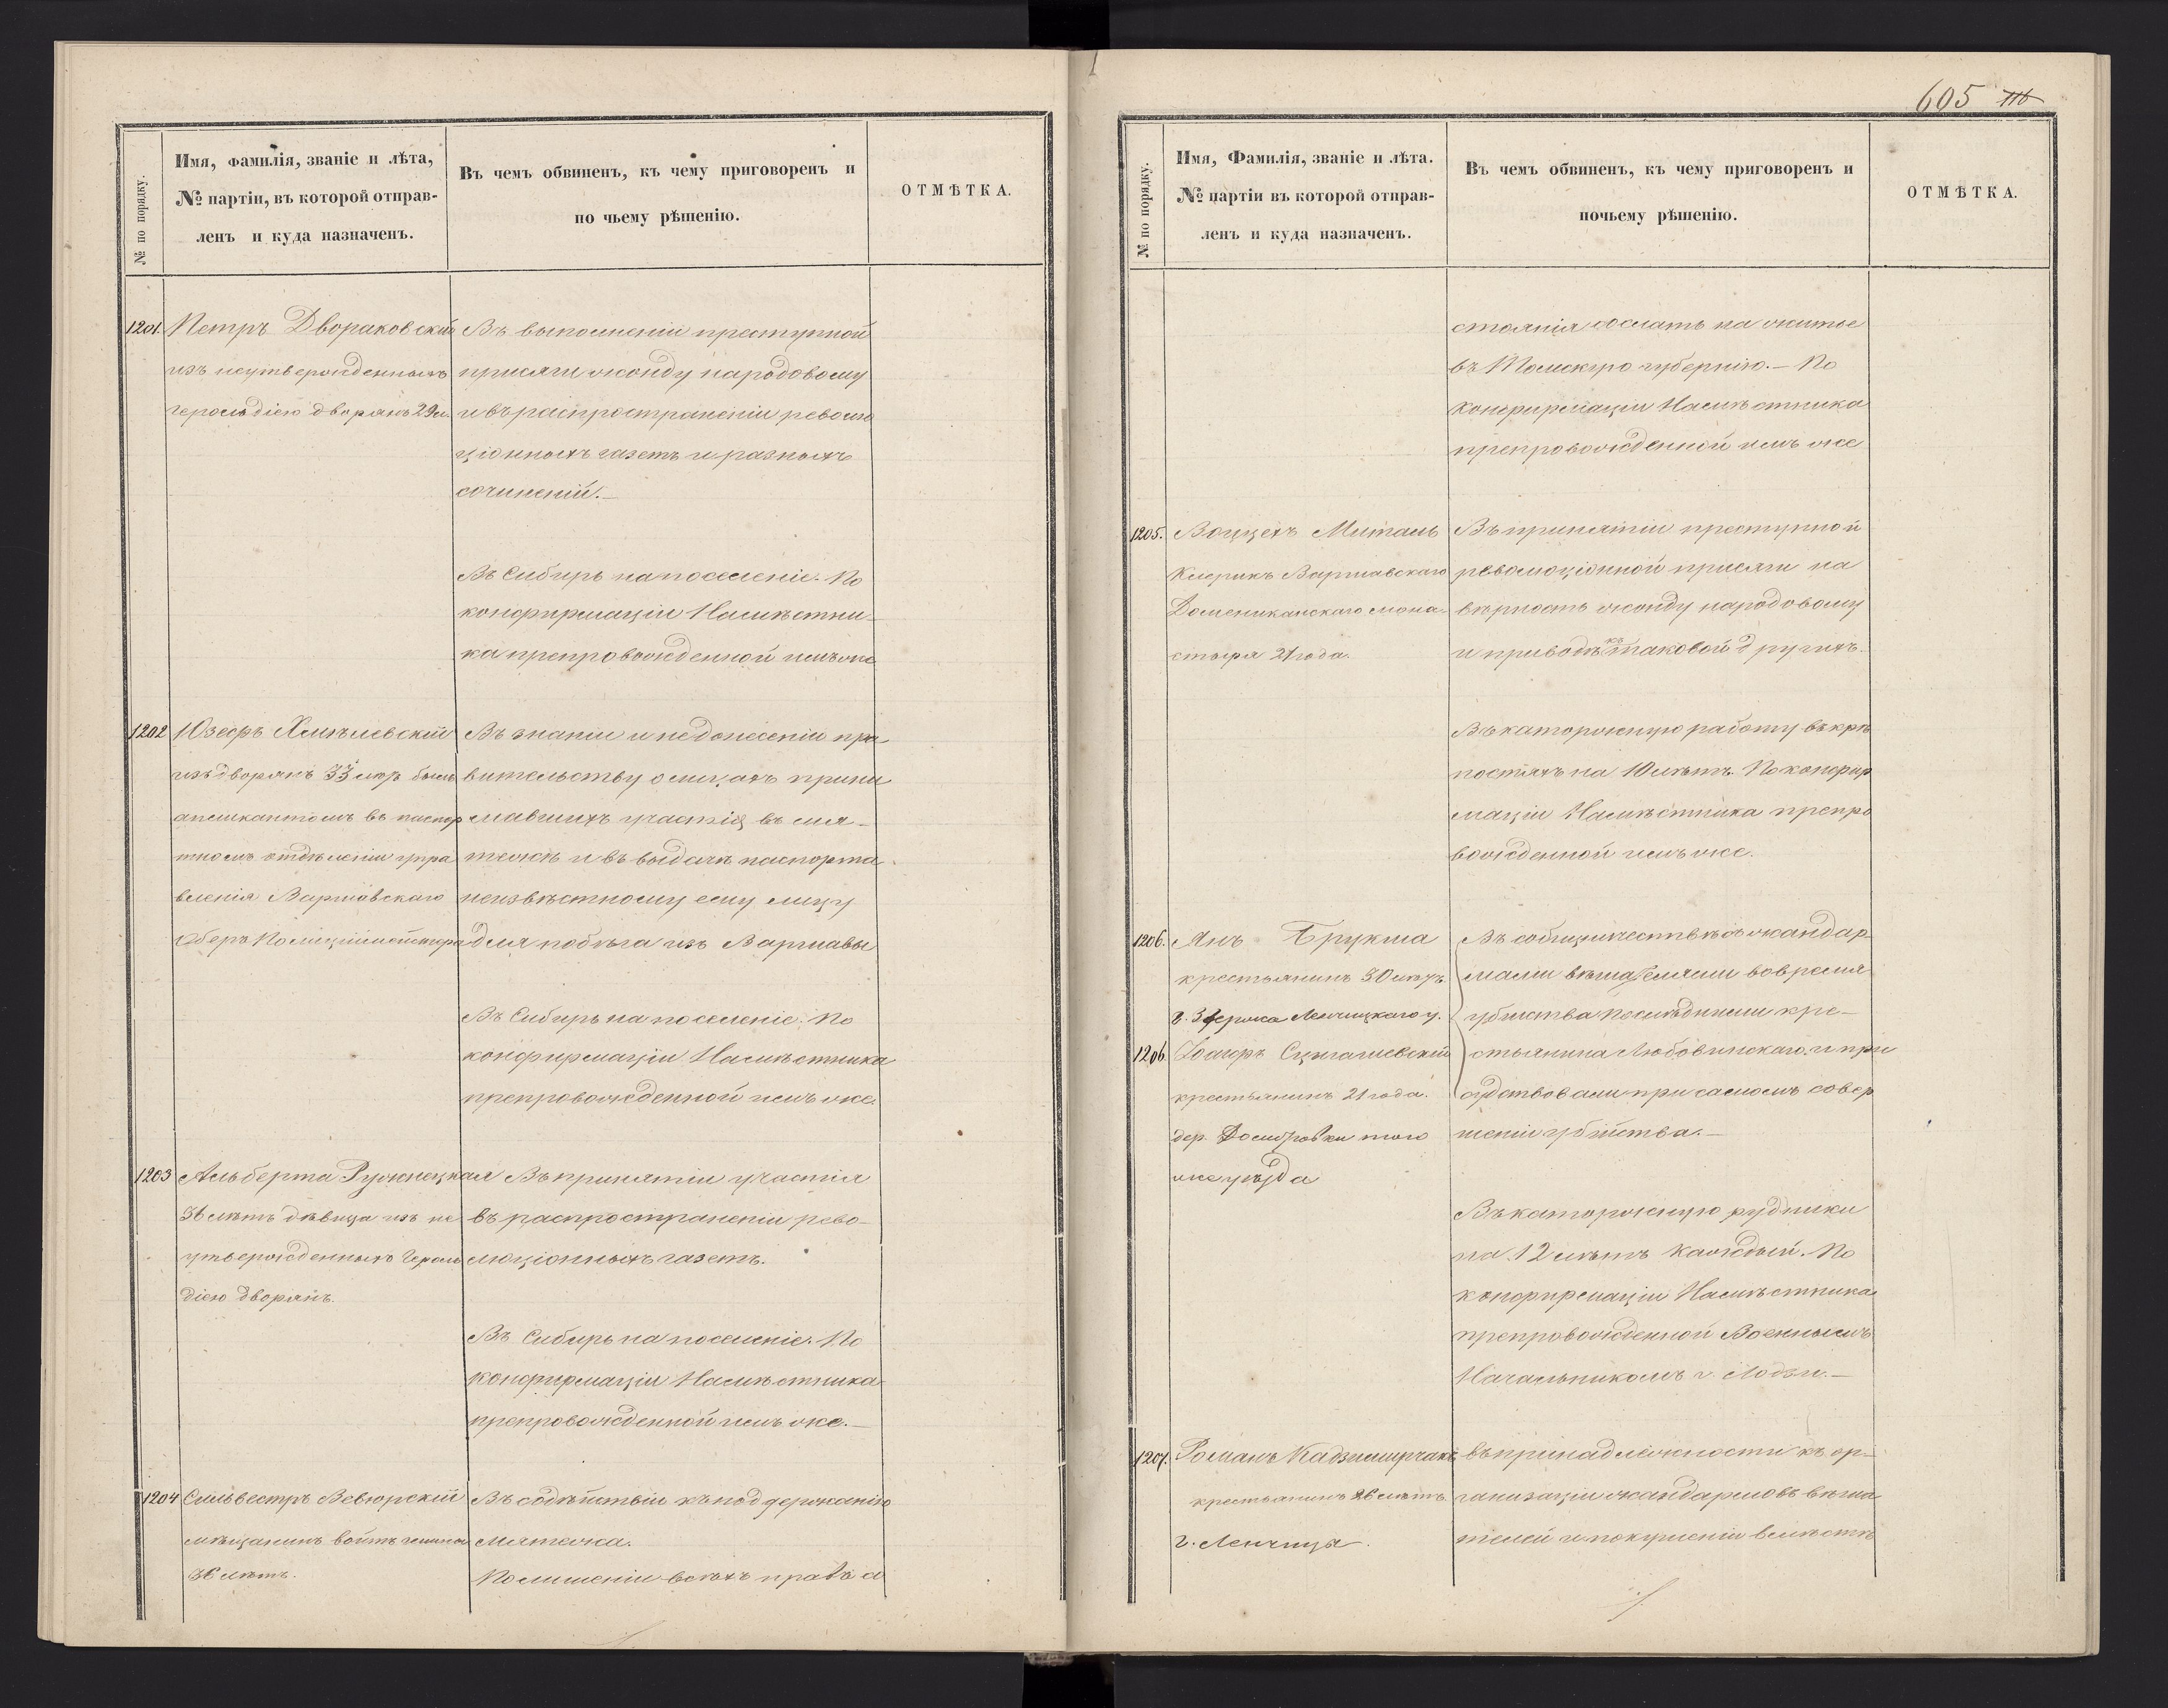 № по порядку.
Имя, фамилія, званіе и лѣта,
№ партіи, въ которой отправ-
ленъ и куда назначенъ.
Въ чемъ обвиненъ, къ чему приговоренъ и
по чьему рѣшенію.
ОТМѢТКА.
1201. Петръ Двораковскій
изъ неутвержденныхъ
герольдіею дворянъ 29 л.
Въ выполненіи преступной
присяги жонду народовому
и въ распространеніи револю
ціонныхъ газетъ и разныхъ
сочиненій.—
Въ Сибирь на поселеніе. По
конфирмаціи Намѣстни-
ка препровожденной имъ же
1202 Юзефъ Хмѣлевскій
изъ дворянъ 33 лѣтъ былъ
апликантомъ въ паспор
тномъ отдѣленіи упра
вленія Варшавскаго
Оберъ Полиціймейстера
Въ знаніи и недонесеніи пра
вительству о лицахъ прини
мавшихъ участіе въ мя-
тежѣ и въ выдачѣ паспорта
неизвѣстному ему лицу
для побѣга изъ Варшавы
Въ Сибирь на поселеніе. По
конфирмаціи Намѣстника
препровожденной имъ же.
1203 Альберта Ружнецкая
36 лѣтъ дѣвица изъ не
утвержденныхъ Героль
діею дворянъ.
Въ принятіи участія
въ распространеніи рево-
люціонныхъ газетъ.
Въ Сибирь на поселеніе. По
конфирмаціи Намѣстника
препровожденной имъ же.—
1204 Сильвестръ Вевюрскій
мѣщанинъ войтъ гмины
36 лѣтъ.
Въ содѣйствіи къ поддержанію
мятежа.
По лишеніи всѣхъ правъ со
605 116
№ по порядку.
Имя, Фамилія, званіе и лѣта.
№ партіи въ которой отправ-
ленъ и куда назначенъ.
Въ чемъ обвиненъ, къ чему приговоренъ и
почьему рѣшенію.
ОТМѢТКА.
стоянія сослать на житье
въ Томскую губернію.— По
конфирмаціи Намѣстника
препровожденной имъ же
1205. Войцехъ Миталь
Клерикъ Варшавскаго
Домениканскаго мона-
стыря 21 года.
Въ принятіи преступной
революціонной присяги на
вѣрность жонду народовому
и приводѣ къ таковой другихъ.
Въ каторжную работу въ крѣ
постяхъ на 10 лѣтъ. По конфир
маціи Намѣстника препро
вожденной имъ же.
1206. Янъ Брукша
крестьянинъ 30 лѣтъ
г. Згержа Ленчицкаго у.
1206. Сцигашевскій
крестьянинъ 21 года.
дер. Домбровки того
же уѣзда
Въ сообщничествѣ съ жандар
мами вѣшателями во время
убійства послѣдними кре-
стьянина Любовинскаго и при
сутствовали при самомъ совер
шеніи убійства.—
Въ каторжную рудники
на 12 лѣтъ каждый. По
конфирмаціи Намѣстника
препровожденной Военнымъ
Начальникомъ г. Лодзи.—
1207. Романъ Кадзимирчакъ
крестьянинъ 26 лѣтъ
г. Ленчица.
въ принадлежности къ ор-
ганизаціи жандармовъ вѣша
телей и покушеніи вмѣстѣ